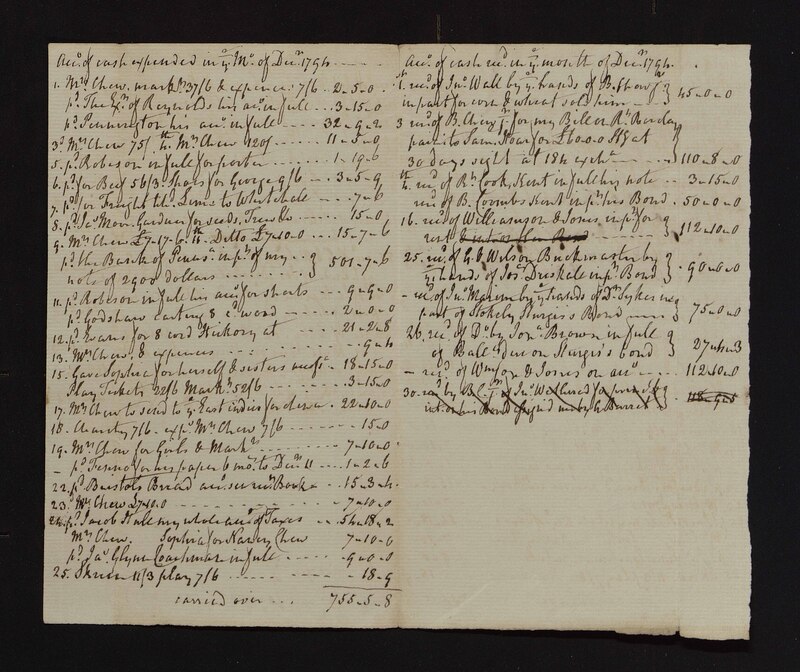 Acc.t of cash expended in y.e Mo. of Dec.r 1794
1. M.rs Chew mark.t 37/6 & expences 7/6 .. 2-5-0
p.d The Ex.rs of Reynolds his acc.t in full .. 3-15-0
p.d Pennington his acc.t in full 32-9-2
3.d M.rs Chew 75/ M.rs Chew 120/ 11-5-0
5. p.d Robeson in full for porter 1-19-6
6. p.d for Beef 56/3. Shoes for George 9/6 3-5-9
7. p.d for Freight Lime to Whitehall -7-6
8. p.d Gardner for seeds, Trees &c 15-0
9. M.rs Chew £7-17-6 Ditto £7-10-0 15-7-6
p.d the Bank of Penns.a in p.t of my
note of 2900 dollars 501-7-6
11. p.d Robeson in full his acc.t for shorts 9-9-0
p.d Godshaw carting 8 c. wood 2-0-0
12. p.d Evans for 8 cord Hickory at 21-2-8
13. M.rs Chew & expences
15. Gave Sophia for herself & sisters 18-15-0
Play Tickets 22/6 Mark.t 52/6 3-15-0
17. M.rs Chew to send to y.e East indies for china 22-10-0
18. Charity 7/6. exp.s M.rs Chew 7/6 15-0
19. M.rs Chew for Girls & Mark.t 7-10-0
- p.d Fenno for his paper 6 mo.s to Dec.r 11 1-2-6
22. p.d Bread acc.t Book 15-3-4
23. M.rs Chew £7-10-0 7-10-0
24. p.d Jacob Hull my whole acc.t of Taxes 54-18-2
M.rs Chew. Sophia for Nancy Chew 7-10-0
p.d Ja.s Glynn Coachman in full 9-0-0
25. 11/3 play 7/6 18-9
carried over 755-5-8
Acc.t of cash rec.d in y.e month of Dec.r 1794
1. rec.d of Jn.o Wall by y.e hands of B.
in part for corn & wheat sold him 45-0-0
3 rec.d of B. Chew for my Bill on R.t Barclay
Sam. Hoar for £60-0-0 St.g at
30 days sight at 184 exch.e 110-8-0
rec.d of R. Cook, Kent in full his note 3-15-0
rec.d of B. Coombs Kent in p.t his Bond 50-0-0
16. rec.d of Williamson & Jones in p.t for
rent 112-10-0
25. rec.d of G. Wilson Buckmaster by
y.e hands of Jos. Driskall in p.t Bond 90-0-0
- rec.d of Jn.o Marim by y.e hands of D.r Sykes in
part of Stokely Sturgis's Bond 75-0-0
26. rec.d of D.o by Jon.a Brown in full
of Ball.e due on Sturgis's bond 27-4-3
- rec.d of W.mson & Jones on acc.t 112-10-0
30. rec.d by
his Bond